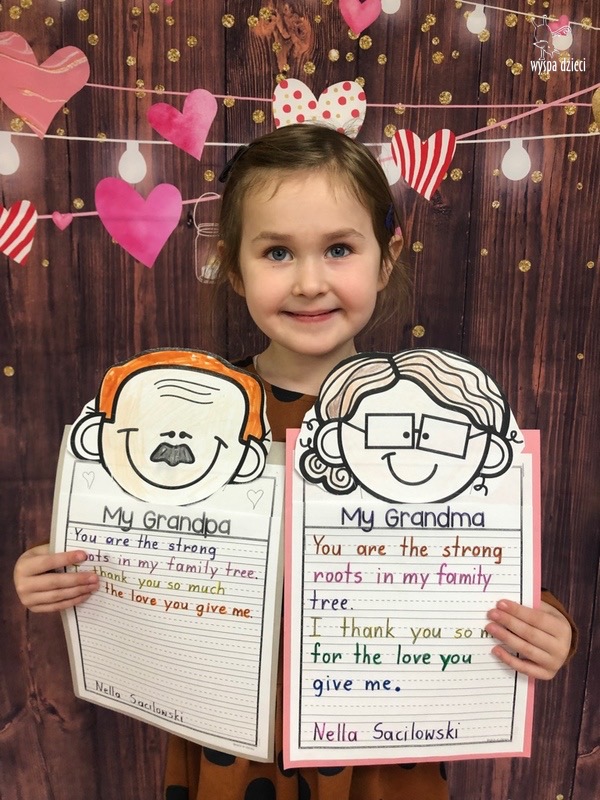 wyspa dzieci
My Grandpa
You are the strong
roots in my family tree.
I thank you so much
the love you give me.
Nella Sacilowski
My Grandma
You are the strong
roots in my family
tree.
I thank you so m
for the love you
give me.
Nella Sacilowski